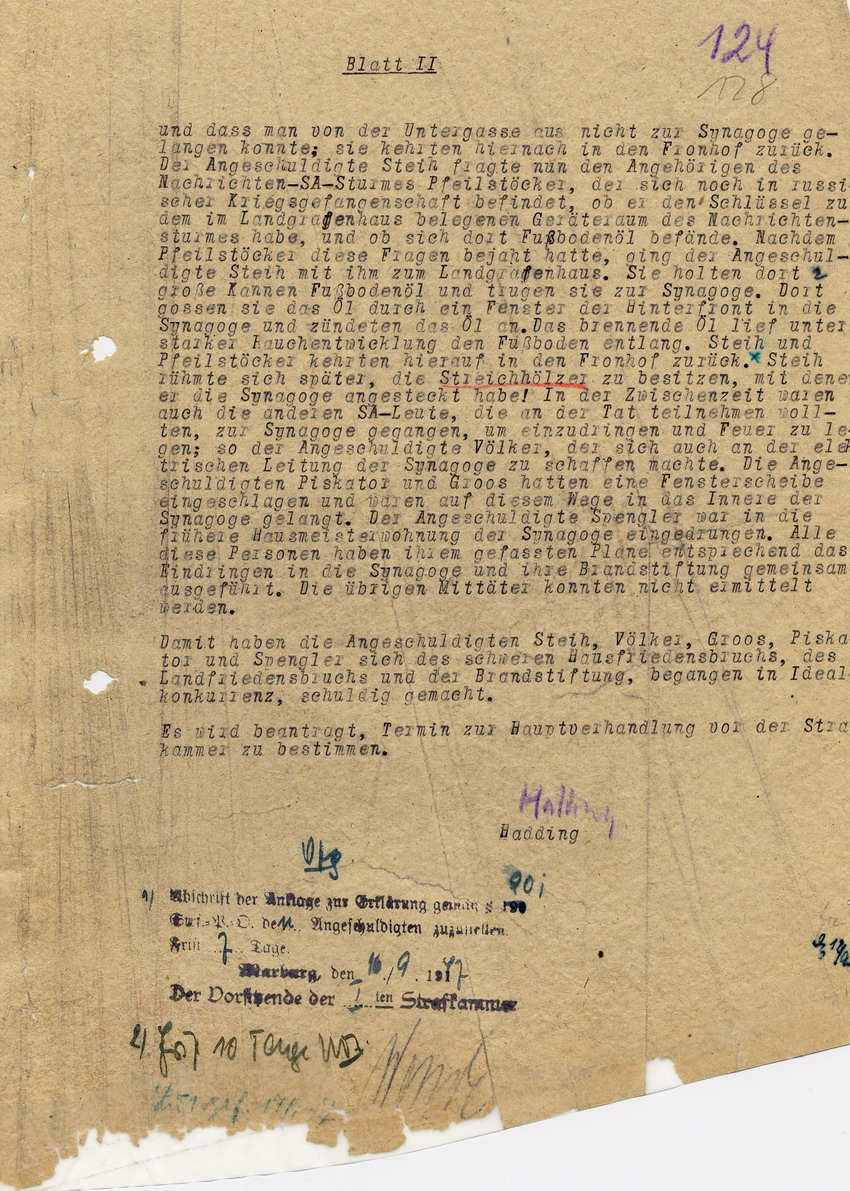 124
128
Blatt II
und dass man von der Untergasse aus nicht zur Synagoge ge-
langen konnte; sie kehrten hiernach in den Fronhof zurück.
Der Angeschuldigte Steih fragte nun den Angehörigen des
Nachrichten-SA-Sturmes Pfeilstöcker, der sich noch in russi
scher Kriegsgefangenschaft befindet, ob er den Schlüssel zu
dem im Landgrafenhaus belegenen Geräteraum des Nachrichten-
sturmes habe, und ob sich dort Fußbodenöl befände. Nachdem
Pfeilstöcker diese Fragen bejaht hatte, ging der Angeschul-
digte Steih mit ihm zum Landgrafenhaus. Sie holten dort 2
große Kannen Fußbodenöl und trugen sie zur Synagoge. Dort
gossen sie das Öl durch ein Fenster der Hinterfront in die
Synagoge und zündeten das Öl an. Das brennende Öl lief unter
starker Rauchentwicklung den Fußboden entlang. Steih und
Pfeilstöcker kehrten hierauf in den Fronhof zurück.x Steih
rühmte sich später, die Streichhölzer zu besitzen, mit dene
er die Synagoge angesteckt habe! In der Zwischenzeit waren
auch die anderen SA-Leute, die an der Tat teilnehmen woll-
ten, zur Synagoge gegangen, um einzudringen und Feuer zu le-
gen; so der Angeschuldigte Völker, der sich auch an der elek
trischen Leitung der Synagoge zu schaffen machte. Die Ange-
schuldigten Piskator und Groos hatten eine Fensterscheibe
eingeschlagen und waren auf diesem Wege in das Innere der
Synagoge gelangt. Der Angeschuldigte Spengler war in die
frühere Hausmeisterwohnung der Synagoge eingedrungen. Alle
diese Personen haben ihrem gefassten Plane entsprechend das
Eindringen in die Synagoge und ihre Brandstiftung gemeinsam
ausgeführt. Die übrigen Mittäter konnten nicht ermittelt
werden.
Damit haben die Angeschuldigten Steih, Völker, Groos, Piska
tor und Spengler sich des schweren Hausfriedensbruchs, des
Landfriedensbruchs und der Brandstiftung, begangen in Ideal
konkurrenz, schuldig gemacht.
Es wird beantragt, Termin zur Hauptverhandlung vor der Stra
kammer zu bestimmen.
Hadding
Hadding
Vfg.
1) Abschrift der Anklage zur Erklärung gemäß §
Angeschuldigten zuzustellen.
Frist 7 Tage.
Marburg, den 16/9. 1947
Der Vorsitzende der I ten Strafkammer
2) 10 Tage